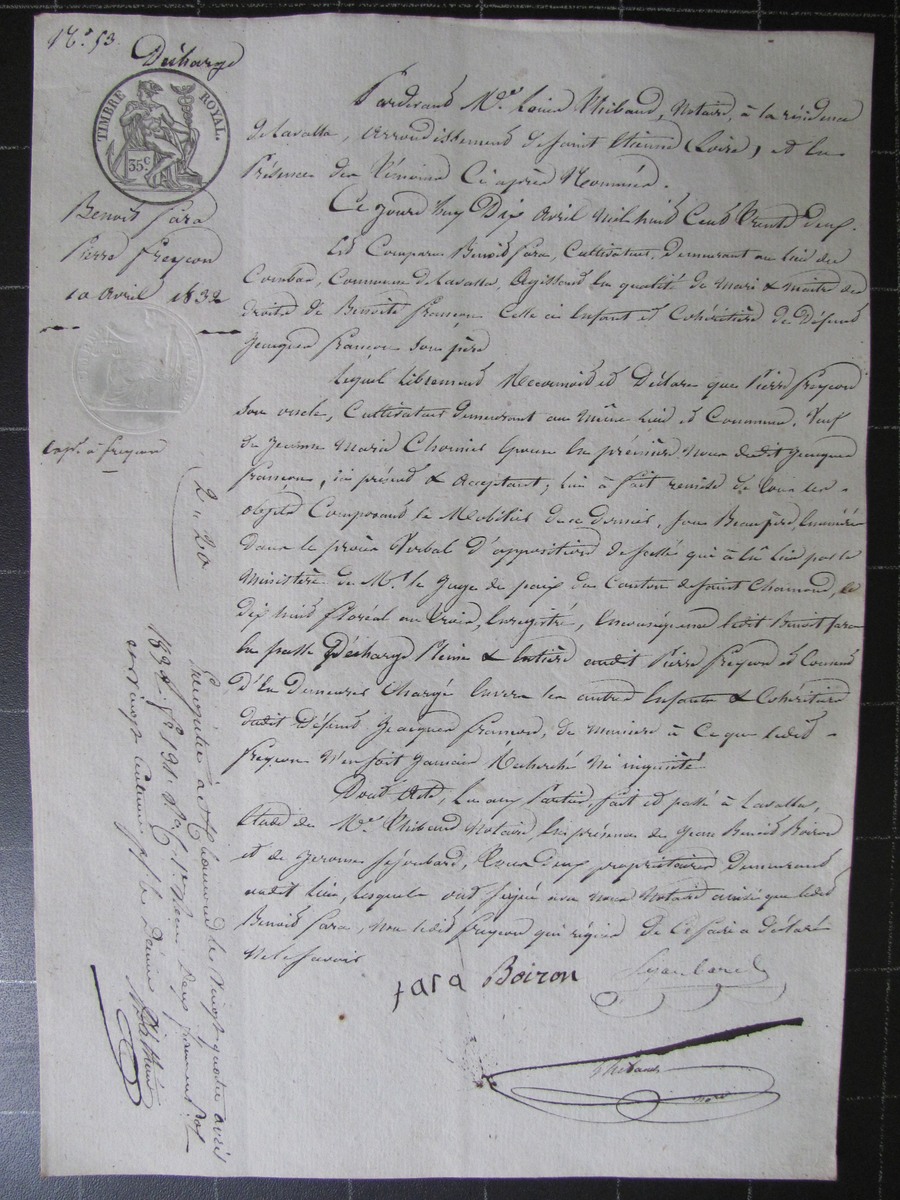 N.° 53.
Décharge
TIMBRE ROYAL.
35 c.
Benoît fara
Pierre freycon
10 avril 1832
Exp.on à freycon
2 " 20
Pardevant M.e Louis Thibaud, Notaire, à la résidence
de Lavalla, arrondissement de Saint Etienne (Loire), et en
Présence des Témoins Ci après Nommés.
Ce Jourd'huy Dix Avril Mil huit Cent Trente deux.
Est Comparu Benoît fara, Cultivateur, Demeurant au lieu de
Combar, Commune de Lavalla, Agissant en qualité de Mari & maitre des
droits de Benoite françon Celle ci Enfant et Cohéritière de Défunt
Jeacques françon Son père
Lequel librement Reconnoit et Déclare que Pierre freycon
Son oncle, Cultivateur demeurant au même lieu et Commune, Veuf
de Jeanne Marie Chomier Epouse en prémière Noces dudit Jeacques
françon, ici présent & Acceptant, lui à fait remise de tous les
objets Composant le Mobilier de ce dernier, son Beau père, Enuméré
Dans le procès Verbal d'apposition de scellé qui à eû lieu par le
Ministère de M.r le Juge de paix du Canton de Saint Chamond, le
dix huit floréal an Trois, Enregistré, Enconséquence ledit Benoit fara
En passe Décharge Pleine & Entière audit Pierre freycon et Consent
D'En Demeurer Chargé Envers les autres Enfants & Cohéritiers
dudit Défunt Jeacques françon, de maniere à Ce que ledit
freycon N'en soit Jamais Recherché Ni inquiété
Dont Acte, Lu aux Parties, fait et passé à Lavalla,
Etude de M.e Thibaud Notaire, En présence de Jean Benoit Boiron
et de Jerome Sejoubard, Tous deux propriétaires Demeurant
audit Lieu, lesquels ont signé avec nous Notaire ainsi que ledit
Benoît fara, Non ledit freycon qui réquis de Ce faire a déclaré
Ne le savoir
fara Boiron
Thibaud
Not.re
Enregistré à St Chamond le vingt quatre avril
1832 f.o 191